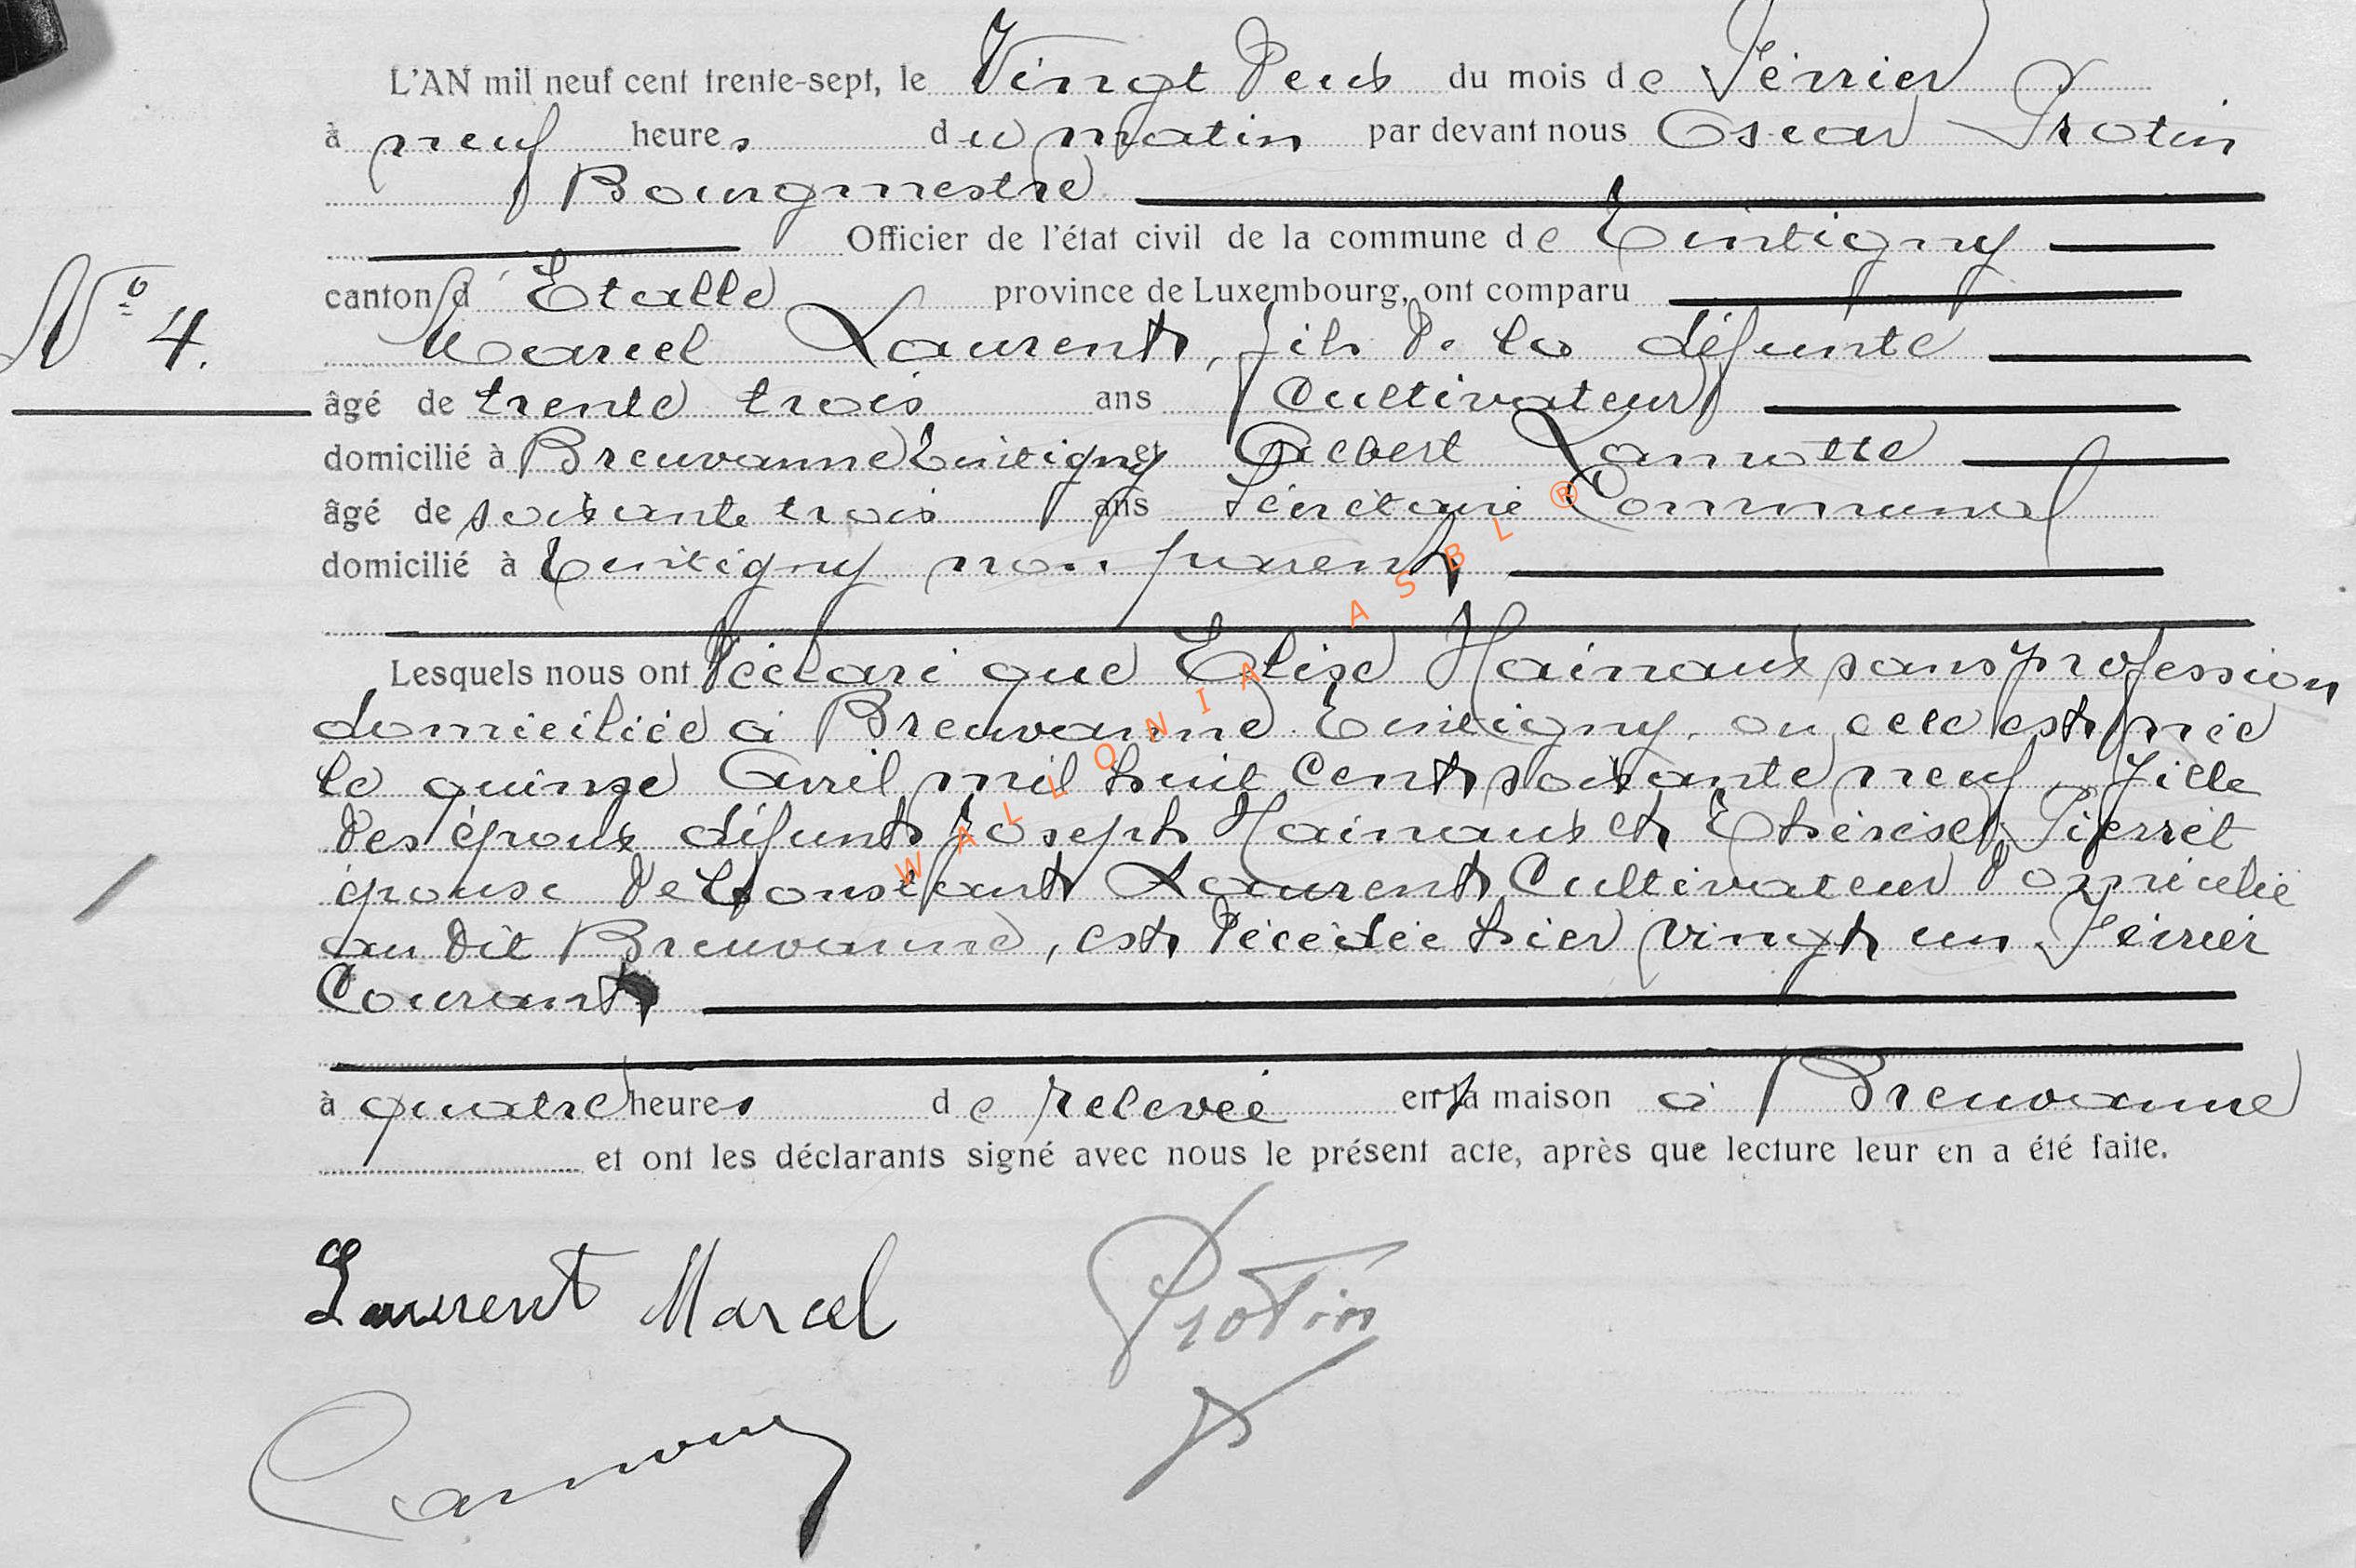 L'AN mil neuf cent trente-sept, le Vingt Deux du mois de Février
à neuf heures du matin par devant nous Oscar Protin
Bourgmestre
Officier de l'état civil de la commune de Tintigny
canton d'Etalle province de Luxembourg, ont comparu
N° 4.
Marcel Laurent, fils de la défunte
âgé de trente trois ans Cultivateur
domicilié à Breuvanne Tintigny et Albert Lamotte
âgé de soixante trois ans Secrétaire Communal
domicilié à Tintigny non parent
Lesquels nous ont Déclaré que Elise Hainaux sans profession
domiciliée à Breuvanne Tintigny, ou elle est née
le quinze Avril mil huit cent soixante neuf, fille
des époux défunts Joseph Hainaux et Thérèse Pierret
épouse de Constant Laurent Cultivateur domicilié
au dit Breuvanne, est décédée hier vingt un Février
Courant
à quatre heures de relevée en sa maison à Breuvanne
et ont les déclarants signé avec nous le présent acte, après que lecture leur en a été faite.
Laurent Marcel Protin
WALLONIA ASBL ®